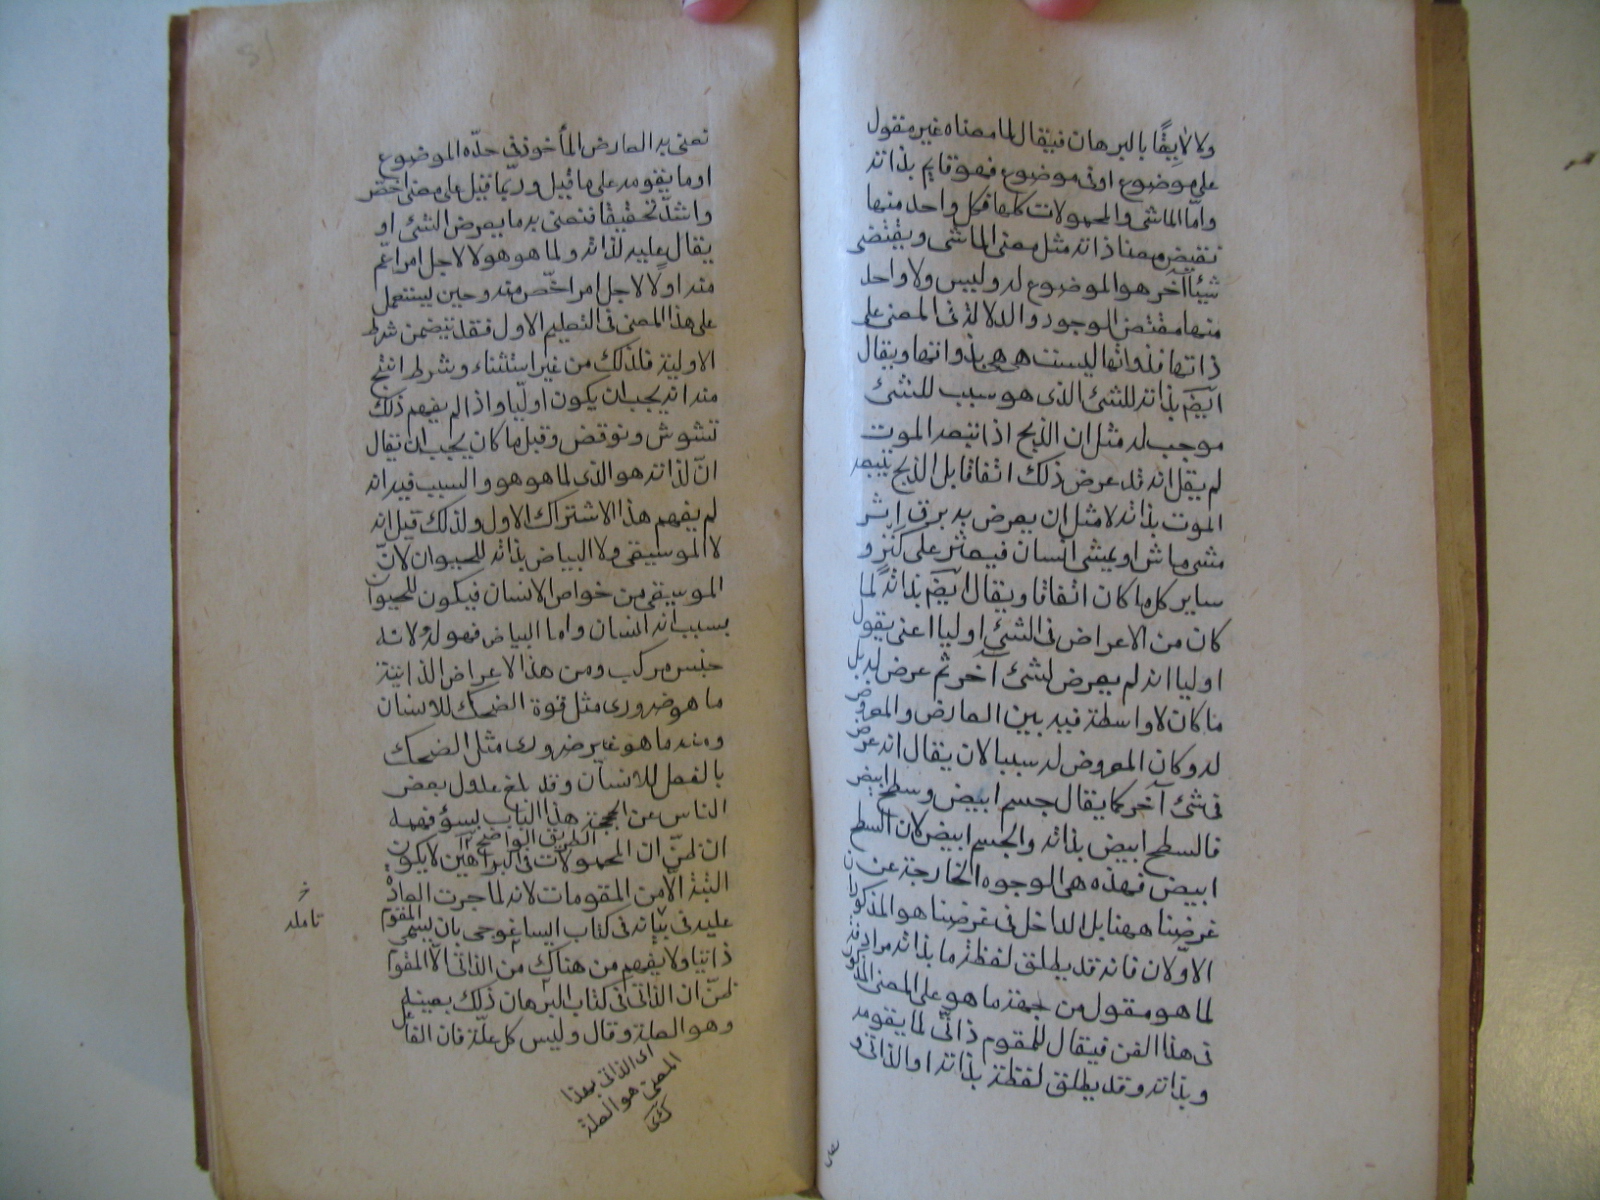 ولا لايقًا بالبرهان فيقال لما معناه غير مقول
على موضوع او فى موضوع فهو قايم بذاته
وامّا الماشى والمحمولات كلها فكل واحد منها
تقتضى معنا ذاته مثل معنى الماشى ويقتضى
شيئًا آخر هو الموضوع له وليس ولا واحد
منها مقتضى الوجود والدلالة فى المعنى على
ذاتها فذواتها ليست هى هى بذواتها ويقال
ايضًم بذاته للشئ الذى هو سبب للشئ
موجب له مثل ان الذبح اذا تبعه الموت
لم يقل انه قد عرض ذلك اتفاقا بل الذبح يتبعه
الموت بذاته لا مثل ان يعرض به برق اثر
مشى ماش او يمشى انسان فيعثر على كنز و
ساير كل ما كان اتفاقا ويقال ايضًم بذاته لما
كان من الاعراض فى الشئ اوليا اعنى بقول
اوليا انه لم يعرض لشئ آخر ثم عرض له بل
ما كان لا واسطة فيه بين العارض والمعروض
له وكان المعروض له سببا لان يقال انه عرض
فى شئ آخر كما يقال جسم ابيض وسطح ابيض
فالسطح ابيض بذاته والجسم ابيض لان السطح
ابيض فهذه هى الوجوه الخارجة عن
غرضنا ههنا بل الداخل فى غرضنا هو المذكوران
الاوّلان فانه قد يطلق لفظة ما بذاته مرادفة
لما هو مقول من جهة ما هو على المعنى المذكور
فى هذا الفن فيقال للمقوم ذاتى لما يقومه
وبذاته وقد يطلق لفظة بذاته او الذاتى و
تعنى به العارض المأخوذ فى حدّه الموضوع
او ما يقومه على ما قيل وربّما قيل على معنى اخصّ
واشدّ تحقيقا فنعنى به ما يعرض الشئ او
يقال عليه لذاته ولما هو هو لا لاجل امر اعمّ
منه اوّلا لاجل امر اخّص منه وحين يستعمل
على هذا المعنى فى التعليم الاول فقد تتضمن شرط
الاولية فلذلك من غير استثناء وشرط انتج
منه انه يجب ان يكون اوليّا واذا لم يفهم ذلك
تشوش ونوقض وقبل ما كان يجب ان يقال
انّ لذاته هو الذى لما هو هو والسبب فيه انه
لم يفهم هذا الاشتراك الاول ولذلك قيل انه
لا الموسيقى ولا البياض بذاته للحيوان لانّ
الموسيقى من خواص الانسان فيكون للحيوان
بسبب انه انسان واما البياض فهو له ولانه
جنس مركب ومن هذا الاعراض الذاتية
ما هو ضرورى مثل قوة الضحك للانسان
ومنه ما هو غير ضرورى مثل الضحك
بالفعل للانسان وقد بلغ عدول بعض
الناس عن المحجة هذا الباب بسؤ فهمه
الطريق الواضح
ان ظنّ ان المحمولات فى البراهين لا يكون
البتة الّا من المقومات لانه لما جرت العادة
عليه فى بيانه فى كتاب ايساغوجى بان يسمى المقوم
ذاتيا ولا يفهم من هناك من الذاتى الّا المقوم
ظنّ ان الذاتى فى كتاب البرهان ذلك بعينه
وهو العلة وقال وليس كل علّة فان الفا
اى الذاتى بهذا
المعنى هو العلة
تامله